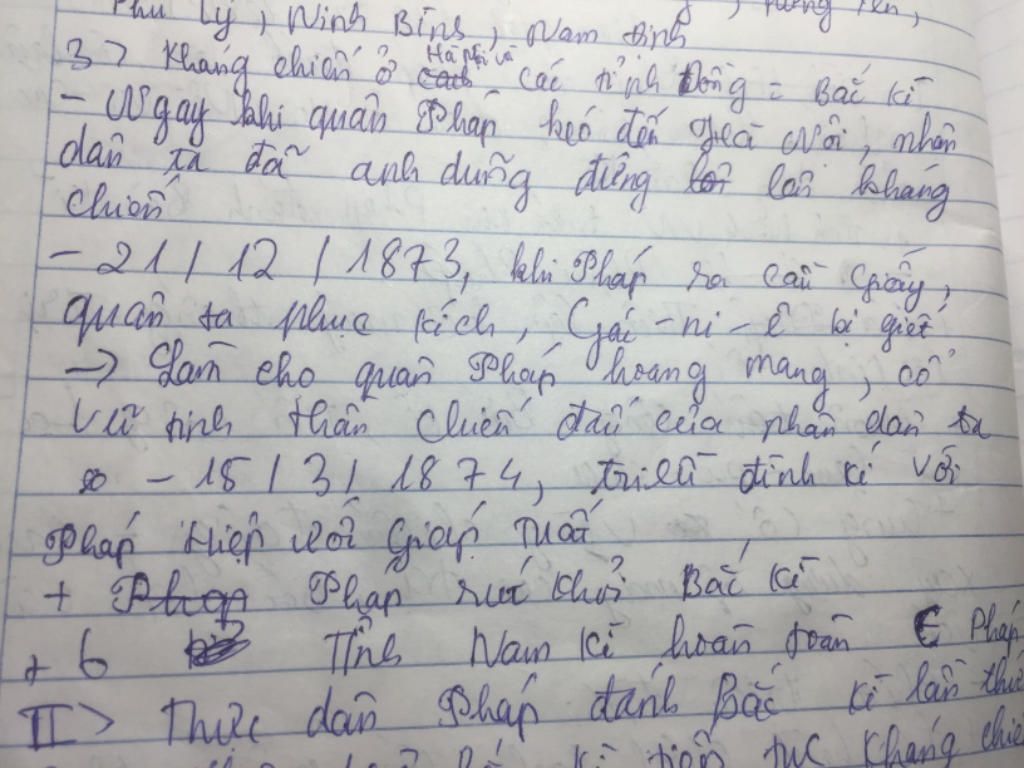 Phủ Lý, Ninh Bình, Nam Định
3> Kháng chiến ở Hà Nội và các tỉnh đồng = Bắc Kì
- Ngay khi quân Pháp kéo đến Hà Nội, nhân
dân ta đã anh dũng đứng lên kháng
chiến
- 21/12/1873, khi Pháp ra Cầu Giấy,
quân ta phục kích, Gác-ni-ê bị giết
→ Làm cho quân Pháp hoang mang, cổ
vũ tinh thần chiến đấu của nhân dân ta
- 15/3/1874, triều đình kí với
Pháp Hiệp ước Giáp Tuất
+ Pháp rút khỏi Bắc Kì
+ 6 Tỉnh Nam Kì hoàn toàn Є Pháp
II> Thực dân Pháp đánh Bắc Kì lần thứ
Kì tiếp tục kháng chiến